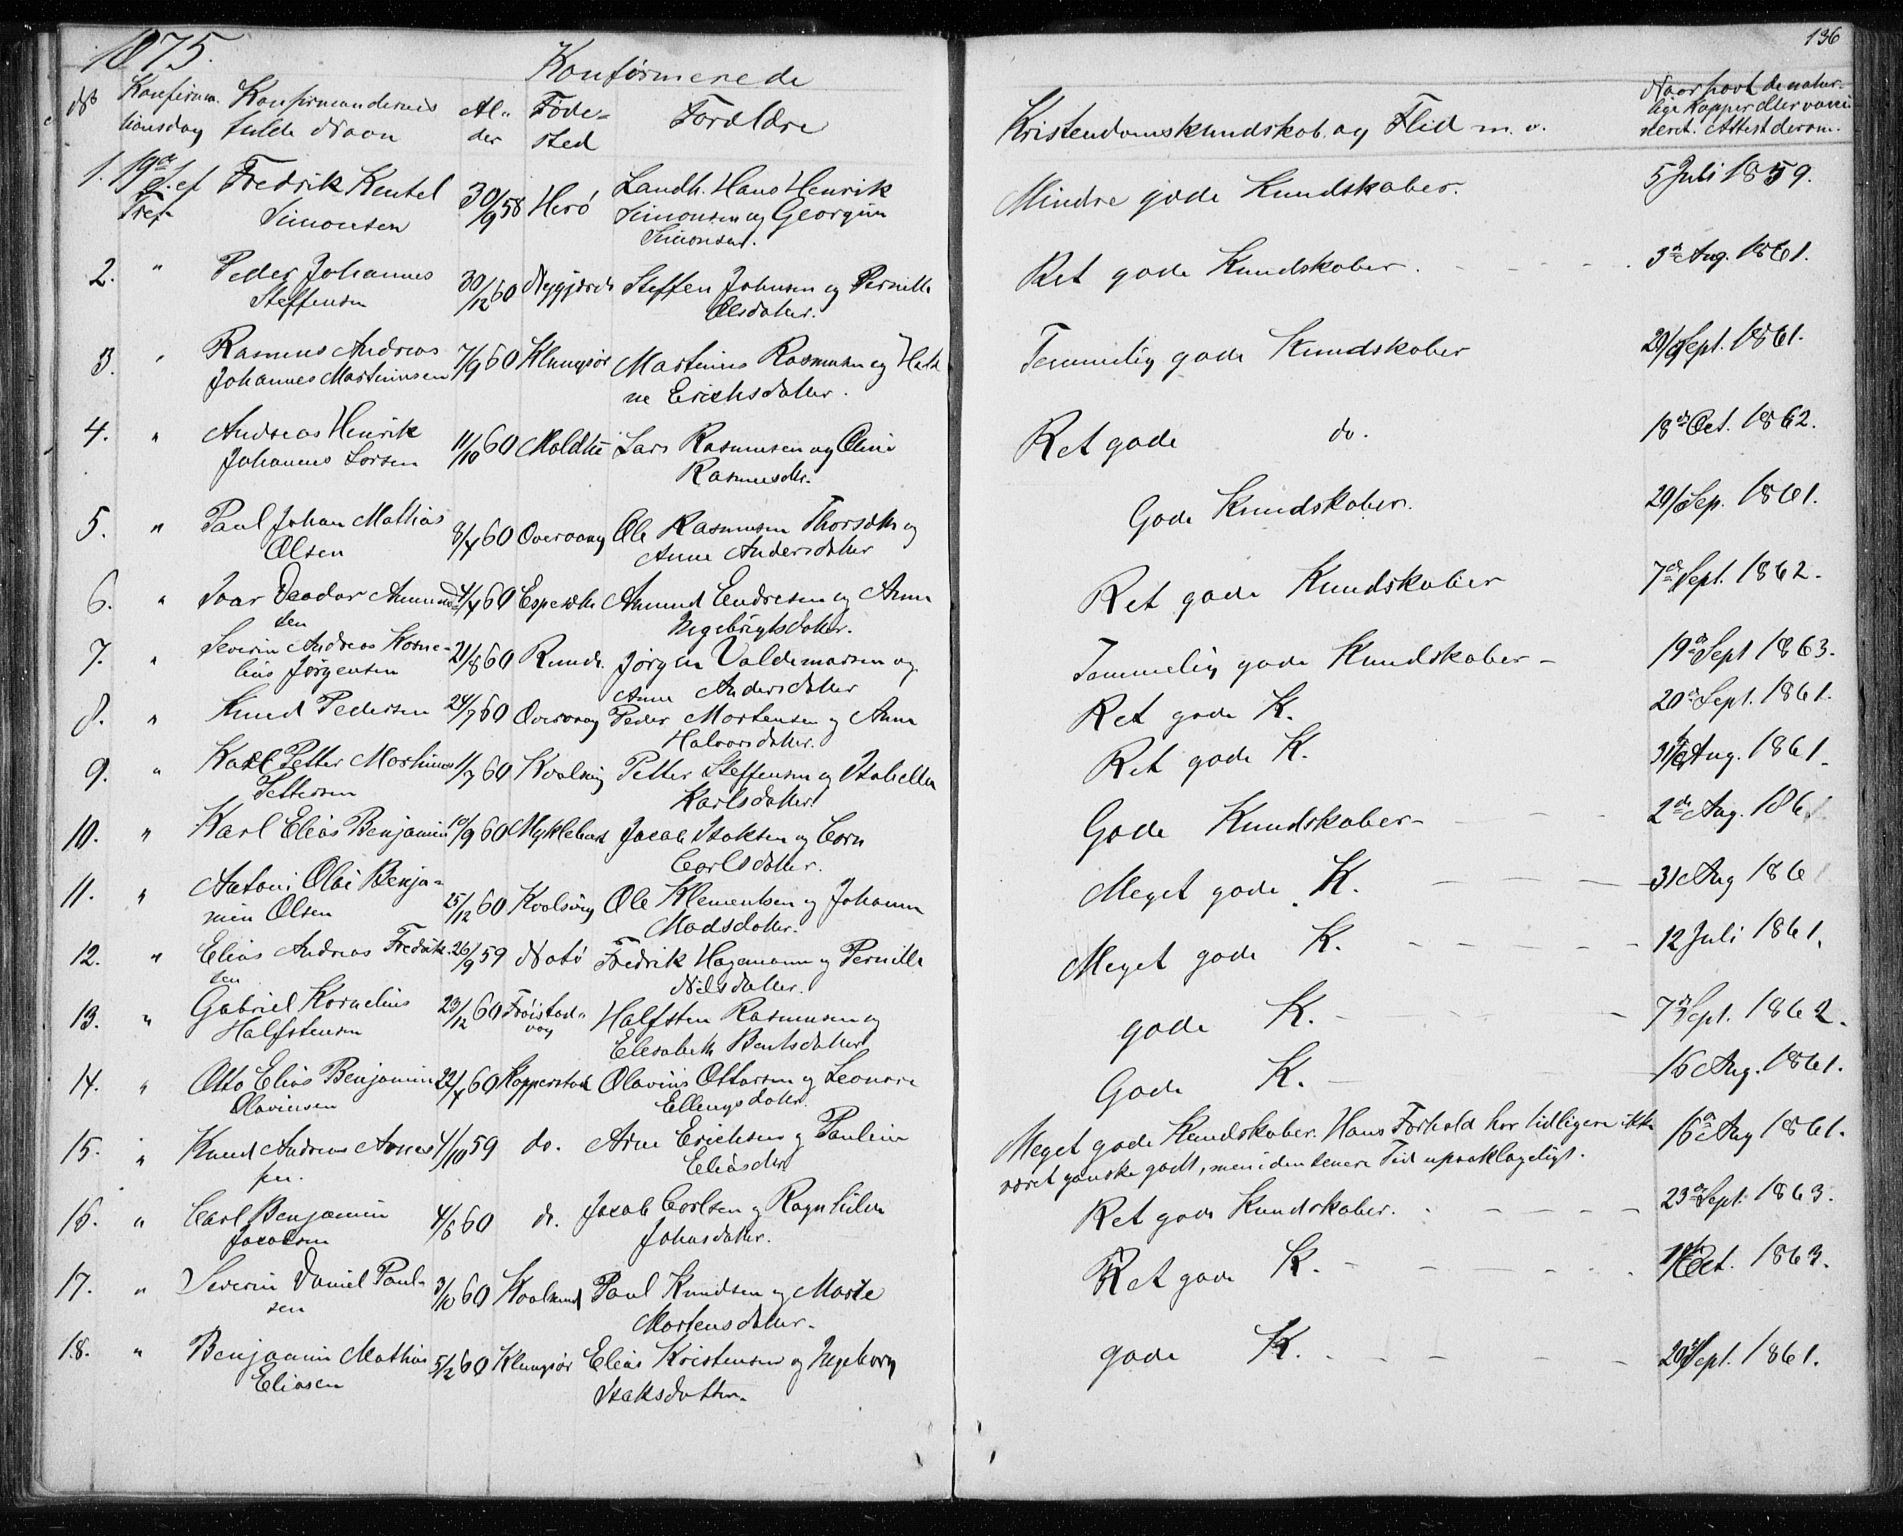 1875.
136
Konfirmerede
No Konfirma- Konfirmandernes Al- Føde- Forældre Kristendomskundskab og Flid m. v. Naar havt de natur-
tionsdag fulde Navn der sted lige Kopper eller vacci-
neret. Attest derom.
1. 19de S. ef Fredrik Kentel 30/9 58 Herö Landh. Hans Henrik Mindre gode Kundskaber. 5 Juli 1859.
Tref. Simonsen Simonsen og Georgine
Simonsen.
2. " Peder Johannes 30/12 60 Steffen Johnsen og Pernille Ret gode Kundskaber. 3de Aug. 1861.
Steffensen Olsdatter.
3. " Rasmus Andreas 7/9 60 Klungsör Martinus Rasmusen og Temmelig gode Kundskaber 29/ Sept. 1861.
Johannes Martinussen ne Erichsdatter.
4. " Andreas Henrik 11/10 60 Lars Rasmusen og Oline Ret gode do. 18de Oct. 1862.
Johannes Larsen Rasmusdtr.
5. " Paul Johan Mathias 8/4 60 Overvaag Ole Rasmusen og Gode Kundskaber. 29/ Sep. 1861.
Olsen Anne Andersdatter
6. " Ivar Teodor Amund 60 Espesæth Amund Endresen og Anne Ret gode Kundskaber 7de Sept. 1862.
sen Ingebrigtsdatter.
7. " Severin Andreas Korne- 21/8 60 Runde. Jörgen Valdemarsen og Temmelig gode Kundskaber - 19de Sept 1863.
lius Jörgensen Anne Andersdatter
8. " Knud Pedersen 24/7 60 Overvaag Peder Mortensen og Anne Ret gode K. 20de Sept. 1861.
Halvorsdatter.
9. " Karl Petter Martinus 1/7 60 Kvalsvig Petter Steffensen og Isabella Ret gode K. 31 Aug. 1861.
Pettersen Karlsdatter.
10. " Karl Elias Benjamin 10/9 60 Myklebust Jacob Isaksen og Gode Kundskaber - 2de Aug. 1861.
Carlsdatter.
11. " Antoni Olai Benja- 25/12 60 Kvalsvig Ole Klementsen og Johanne Meget gode K. 31 Aug 186
min Olsen Madsdatter.
12. " Elias Andreas Fredrik- 26/9 59 Notö Fredrik Hagemann og Pernille Meget gode K. 12 Juli 1861.
sen Nilsdatter.
13. " Gabriel Kornelius 23/12 60 Fröistad- Halfsten Rasmusen og gode K. 7de Sept. 1862.
Halfstensen vag Elesabeth Bentsdatter
14. " Otto Elias Benjamin 22/4 60 Kopperstad Olavius Ottosen og Leonore Gode K. 16 Aug. 1861.
Olaviusen Ellingsdatter.
15. " Knud Andreas Arne- 4/10 59 do. Arne Erichsen og Pauline Meget gode Kundskaber. Hans Forhold har tidligere ikke 16de Aug 1861.
sen. Eliasdtr været ganske godt, men i den senere Tid upaaklageligt.
16. " Carl Benjamin 4/8 60 do. Jacob Carlsen og Ragnhilde Ret gode Kundskaber. 23de Sept. 1863.
Jacobsen Johnsdatter.
17. " Severin Daniel Paul- 3/10 60 Kvalsund Paul Knudsen og Marte Ret gode K. Oct. 1863.
sen Mortensdatter.
18. " Benjamin Mathias 5/12 60 Klungsör Elias Kristensen og Ingeborg gode K. 20de Sept. 1861.
Eliasen Isaksdatter.